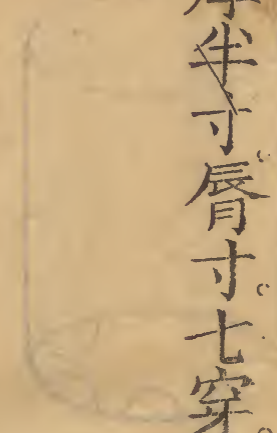 半寸。脣寸。七穿。